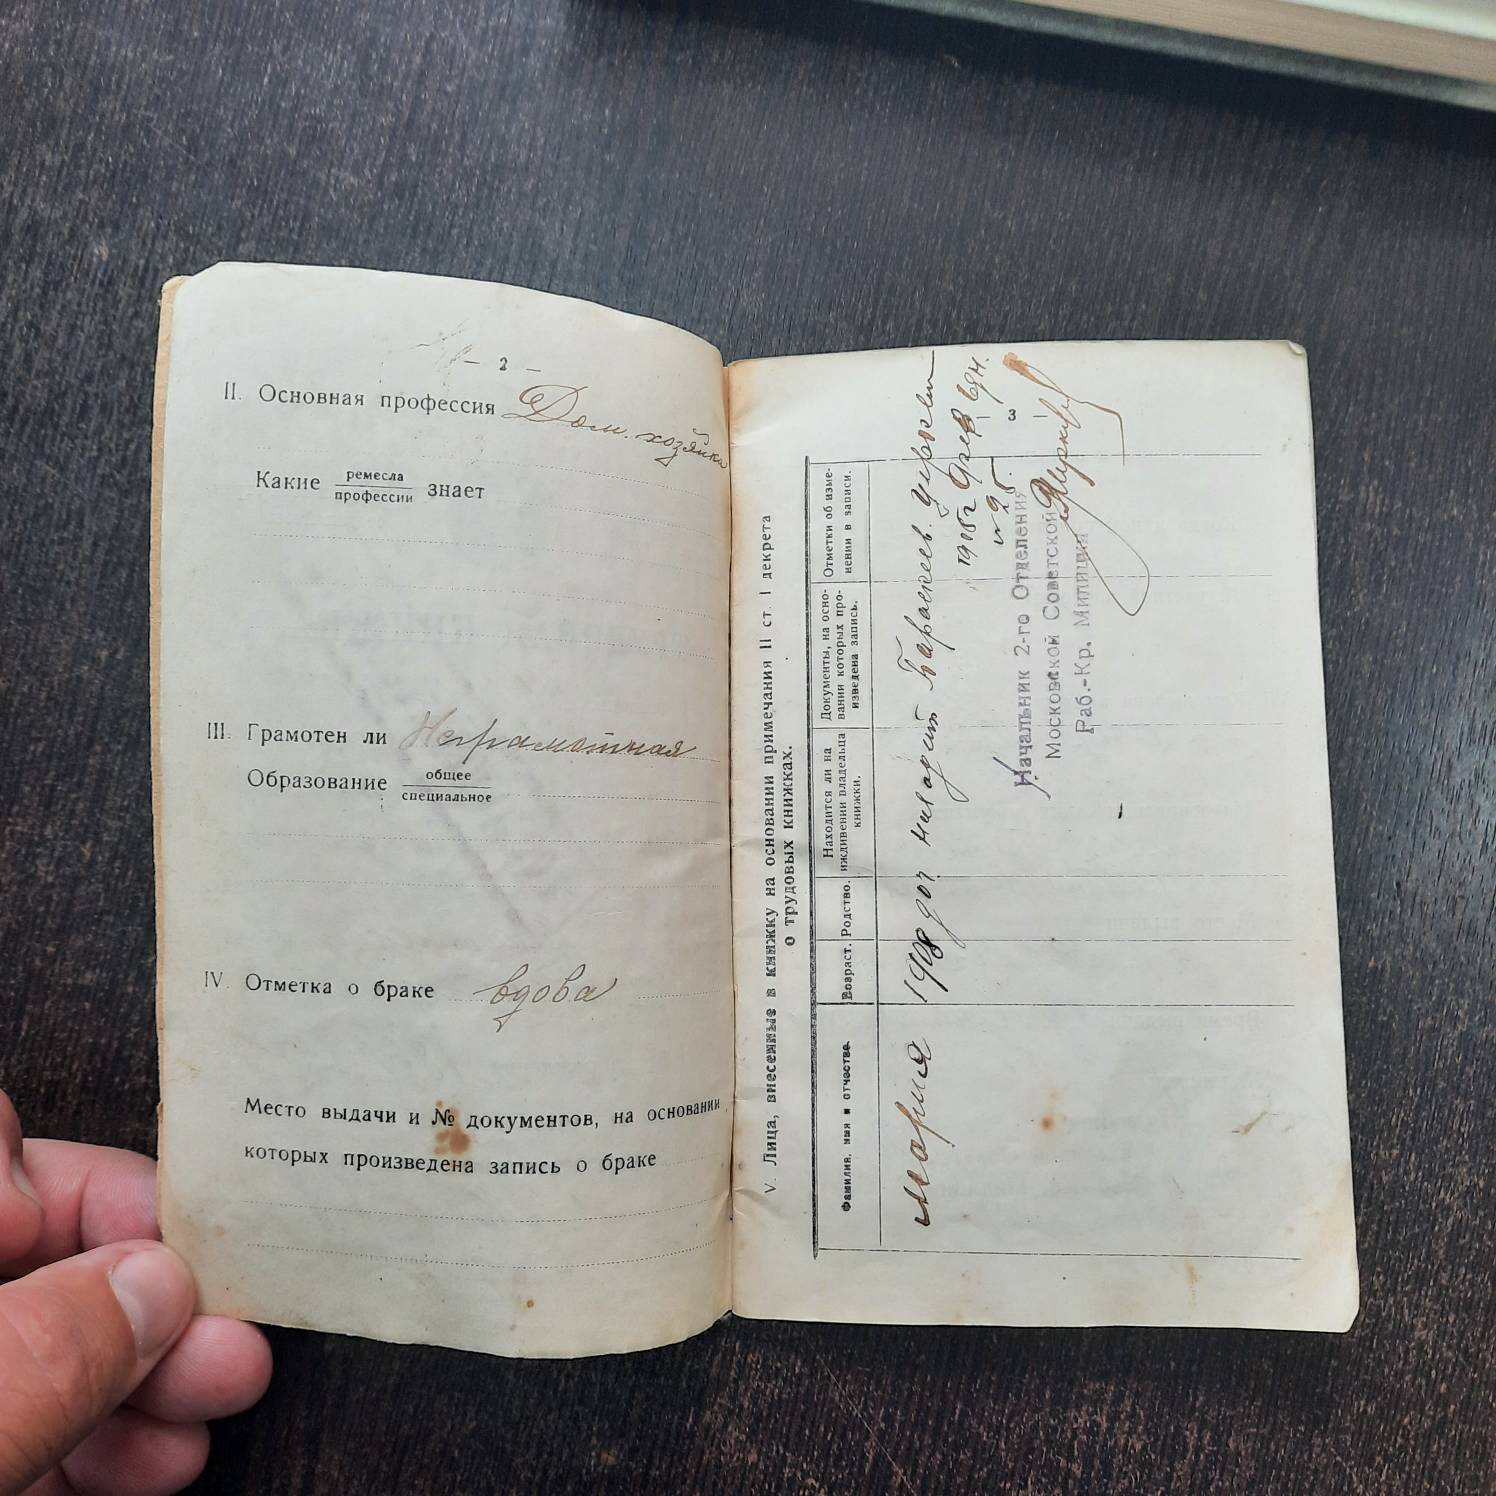 — 2 —
II. Основная профессия Дом. хозяйка
Какие ремесла
профессии знает
III. Грамотен ли Неграмотная
Образование общее
специальное
IV. Отметка о браке вдова
Место выдачи и № документов, на основании
которых произведена запись о браке
— 3 —
V. Лица, внесенные в книжку на основании примечания II ст. I декрета
о трудовых книжках.
Фамилия, имя и отчество.
Возраст.
Родство.
Находится ли на
иждивении владельца
книжки.
Документы, на осно-
вании которых про-
изведена запись.
Отметки об изме-
нении в записи.
Мария 1908 доч. находит Параскев. церкви
1915г
Начальник 2-го Отделения
Московской Советской
Раб.-Кр. Милиции